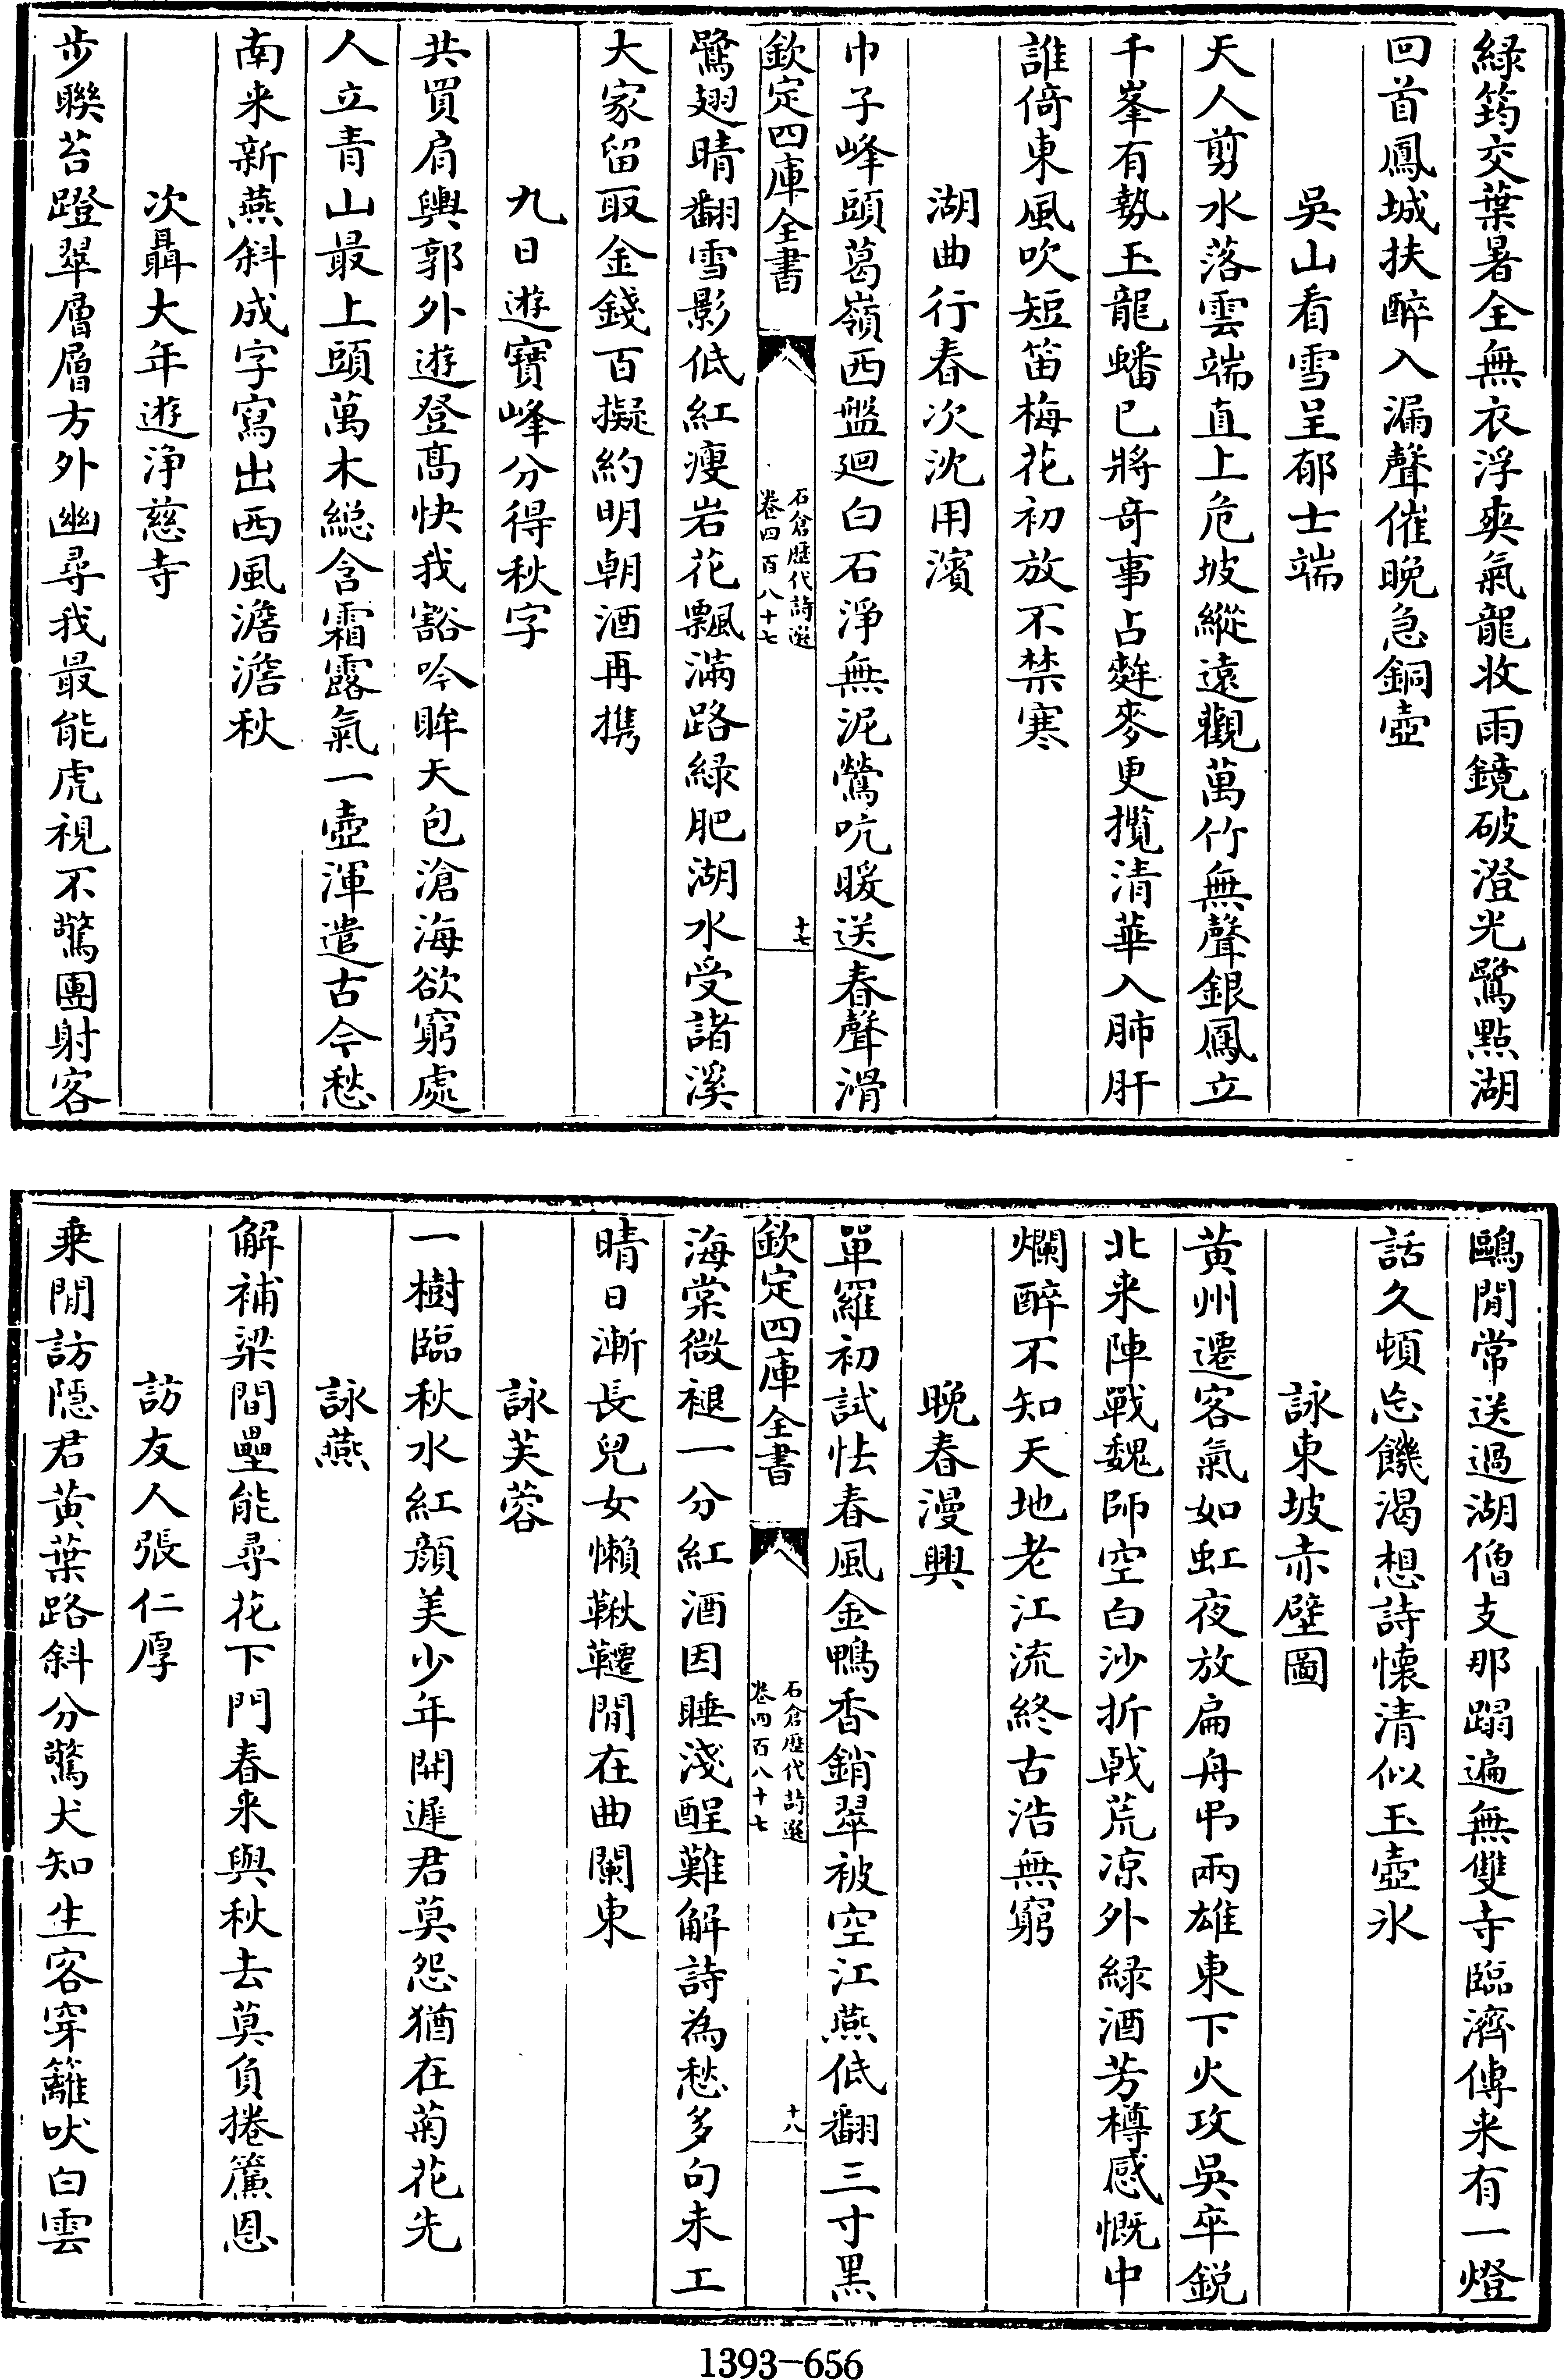 緑筠交葉暑全無衣浮爽氣龍收雨鏡破澄光鷺點湖
回首鳳城扶醉入漏聲催晚急銅壺
吳山看雪呈郁士端
天人剪水落雲端直上危坡縱遠觀萬竹無聲銀鳳立
千峯有勢玉龍蟠已將奇事占麰麥更攬清華入肺肝
誰倚東風吹短笛梅花初放不禁寒
湖曲行春次沈用濱
巾子峰頭葛嶺西盤廻白石淨無泥鶯吭暖送春聲滑
欽定四庫全書
石倉歷代詩選
卷四百八十七
十七
鷺翅晴翻雪影低紅瘦岩花飄滿路緑肥湖水受諸溪
大家留取金錢百擬約明朝酒再携
九日遊寶峰分得秋字
共買肩輿郭外遊登髙快我豁吟眸天包滄海欲窮處
人立青山最上頭萬木総含霜露氣一壺渾遣古今愁
南来新燕斜成字寫出西風澹澹秋
次聶大年遊浄慈寺
步聯苔蹬翠層層方外幽尋我最能虎視不驚團射客
鷗閒常送過湖僧支那蹋遍無雙寺臨濟傳来有一燈
話久頓忘饑渴想詩懷清似玉壺氷
詠東坡赤壁圖
黄州遷客氣如虹夜放扁舟弔兩雄東下火攻吳卒鋭
北来陣戰魏師空白沙折戟荒凉外緑酒芳樽感慨中
爛醉不知天地老江流終古浩無窮
晚春漫興
單羅初試怯春風金鴨香銷翠被空江燕低翻三寸黒
欽定四庫全書
石倉歷代詩選
卷四百八十七
十八
海棠微褪一分紅酒因睡淺酲難解詩為愁多句未工
晴日漸長兒女懶鞦韆閒在曲闌東
詠芙蓉
一樹臨秋水紅顔美少年開遲君莫怨猶在菊花先
詠燕
解補梁間壘能尋花下門春来與秋去莫負捲簾恩
訪友人張仁厚
乗閒訪隱君黄葉路斜分驚犬知生客穿籬吠白雲
1393-656